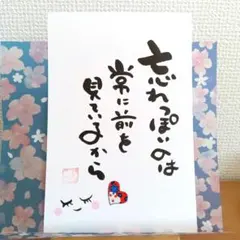 忘れっぽいのは
常に前を
見ているから